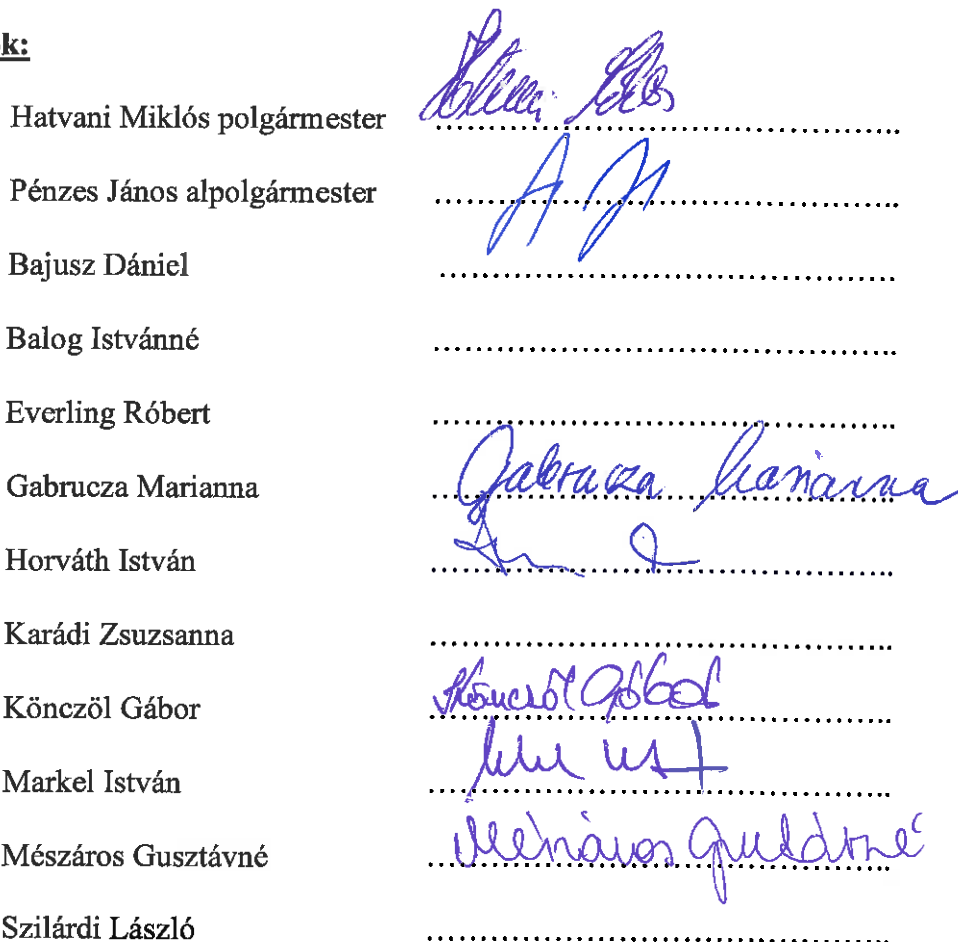 k:
Hatvani Miklós polgármester ........................................
Pénzes János alpolgármester ........................................
Bajusz Dániel ........................................
Balog Istvánné ........................................
Everling Róbert ........................................
Gabrucza Marianna Gabrucza Marianna
Horváth István ........................................
Karádi Zsuzsanna ........................................
Könczöl Gábor Könczöl Gábor
Markel István ........................................
Mészáros Gusztávné Mészáros Gusztávné
Szilárdi László ........................................